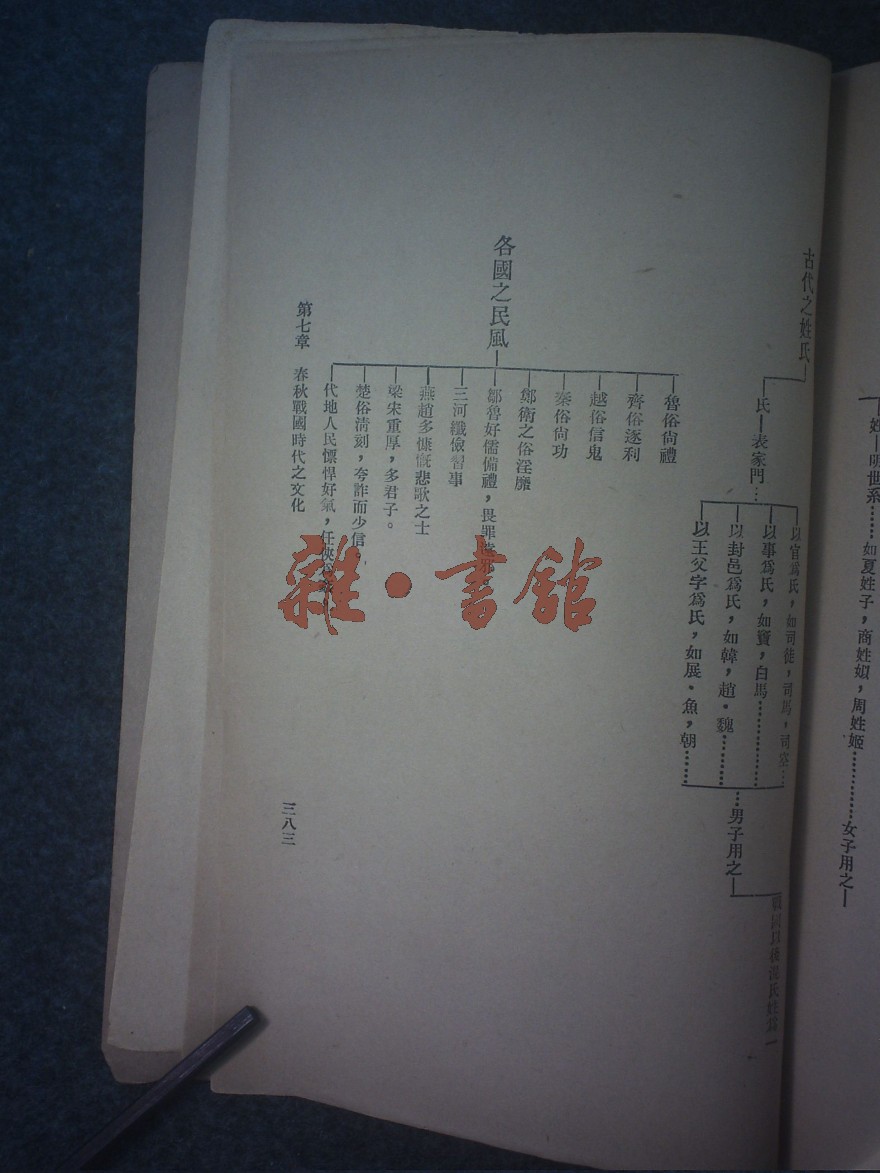 姓—明世系……如夏姓子，商姓姒，周姓姬…………女子用之—
古代之姓氏
氏—表家門…
以官爲氏，如司徒，司馬，司空…
以事爲氏，如竇，白馬………
以封邑爲氏，如韓，趙．魏……
以王父字爲氏，如展．魚，朝……
…男子用之
戰國以後混氏姓爲一
各國之民風
魯俗尙禮
齊俗逐利
越俗信鬼
秦俗尙功
鄭衛之俗淫靡
鄒魯好儒備禮，畏罪
三河纖儉習事
燕趙多慷慨悲歌之士
梁宋重厚，多君子。
楚俗淸刻，夸詐而少信
代地人民慓悍好氣，任俠
第七章　春秋戰國時代之文化
三八三
雜·書館